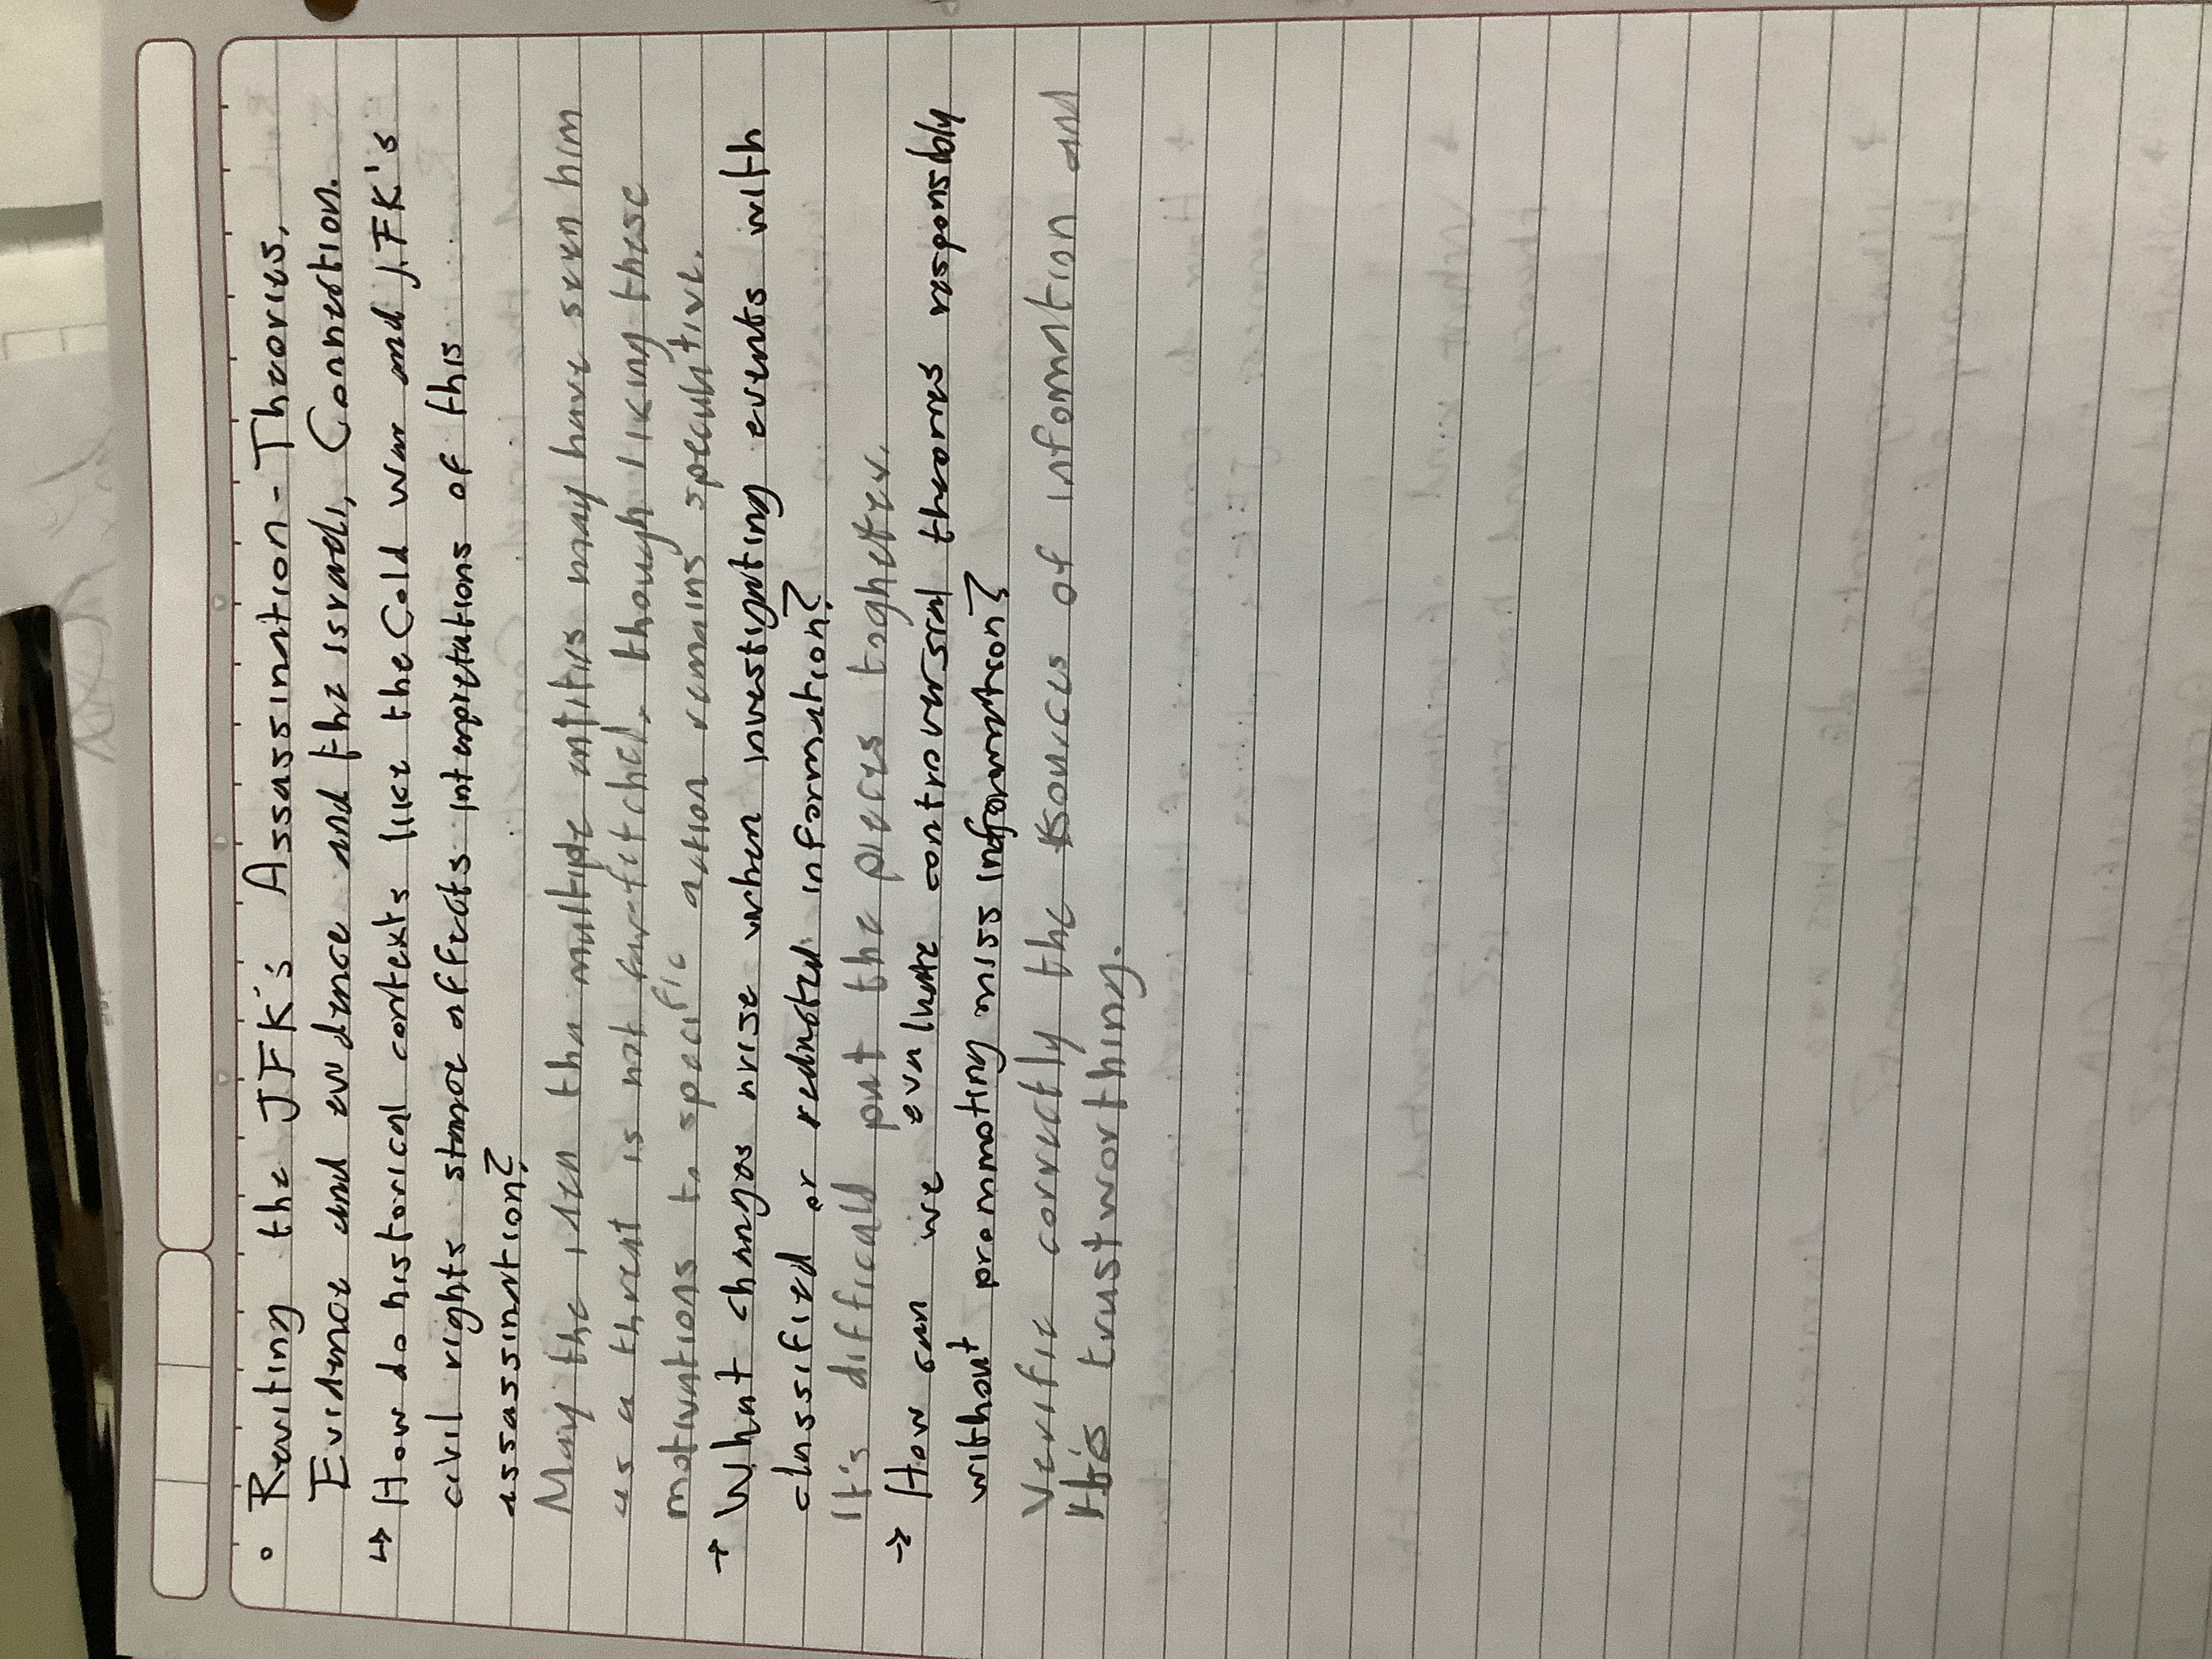 • Reviting the JFK's Assassination - Theories,
Evidence and evidence and the israeli, Connection.
↳ How do historical contexts like the Cold War and JFK's
civil rights stance affects interpretations of this
assassination?
May the idea tha multiple intitis may have seen him
as a threat is not farefitched, though liking these
motivations to specific action remains speculative.
→ What changes arise when investigating events with
classified or redacted information?
It's difficuld put the pieces toghetex.
→ How can we evaluate controversial theories responsibly
without prommoting miss information?
Verific correctly the sources of information and
it's trustworthing.